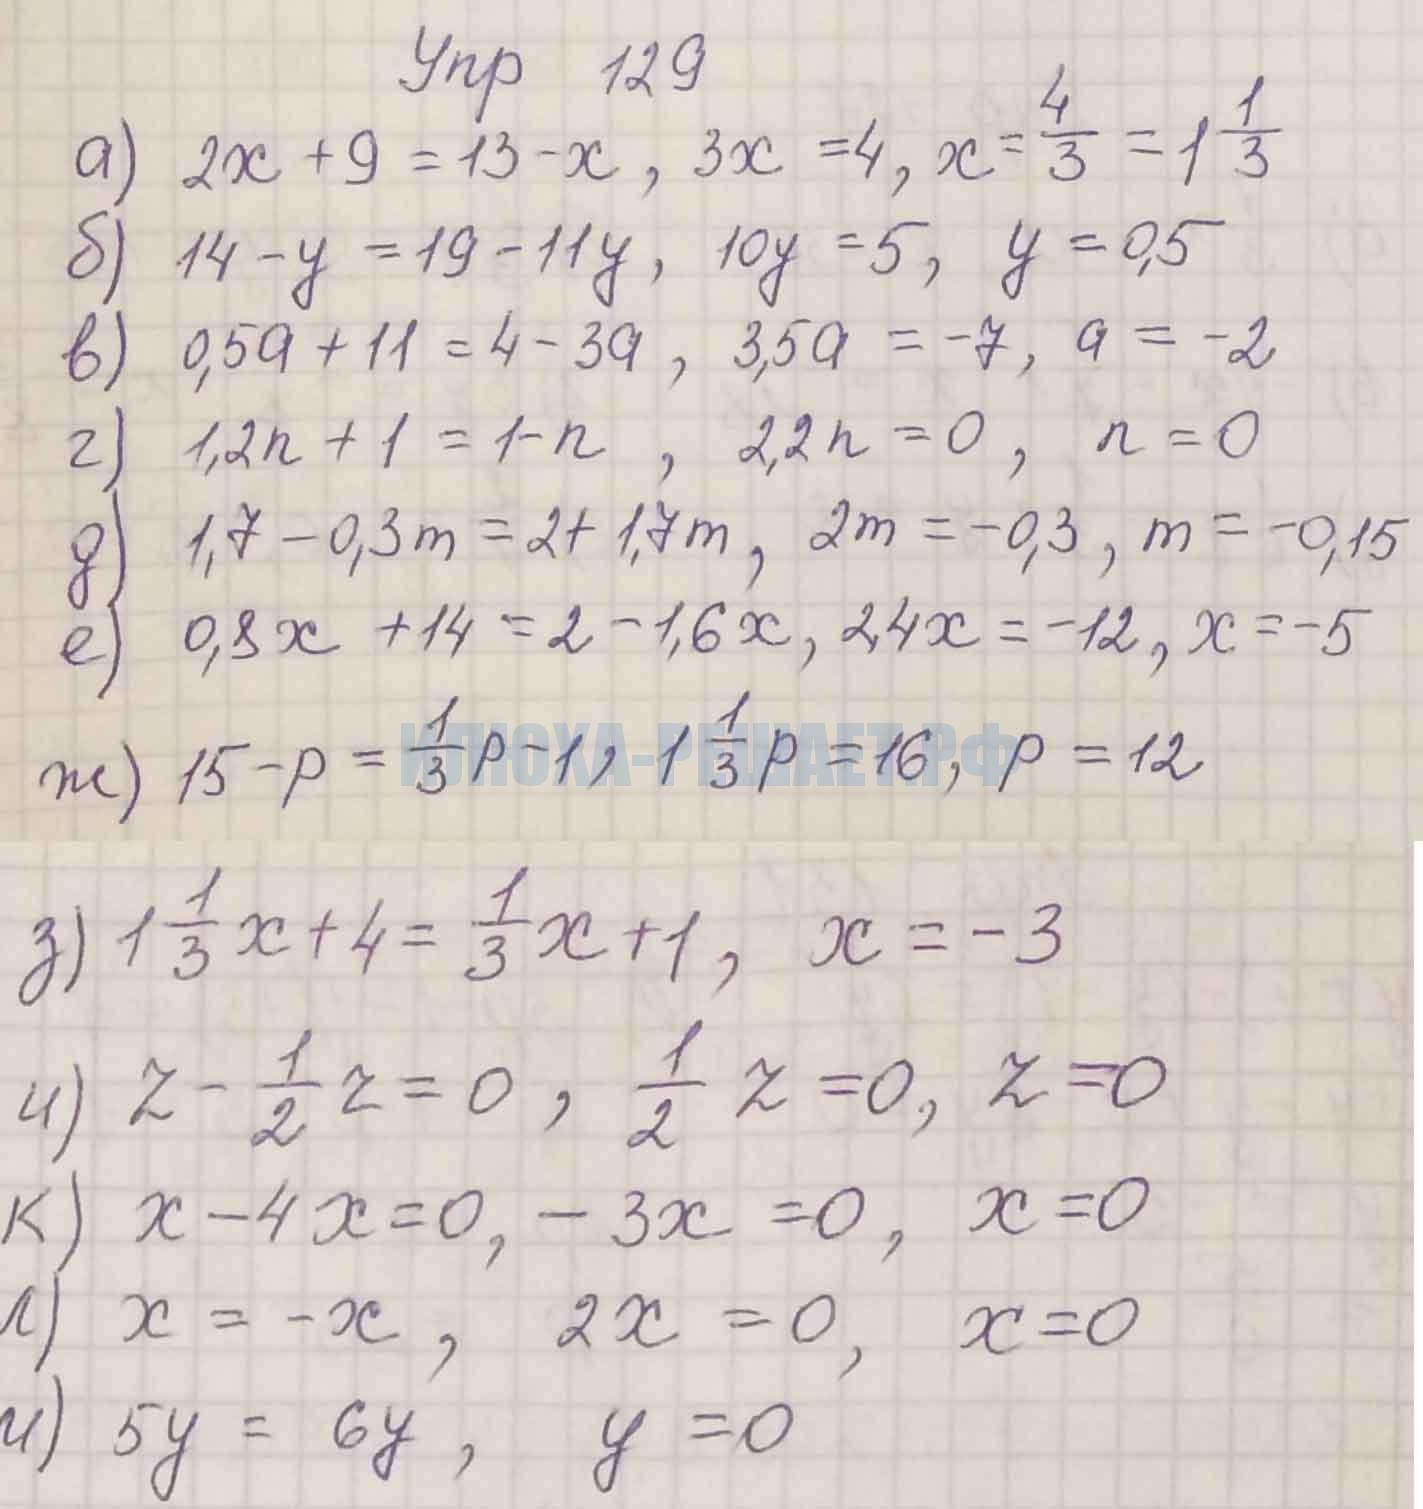 Упр 129
а) 2x + 9 = 13 - x, 3x = 4, x = 4/3 = 1 1/3
б) 14 - y = 19 - 11y, 10y = 5, y = 0,5
в) 0,5a + 11 = 4 - 3a, 3,5a = -7, a = -2
г) 1,2n + 1 = 1 - n, 2,2n = 0, n = 0
д) 1,7 - 0,3m = 2 + 1,7m, 2m = -0,3, m = -0,15
е) 0,8x + 14 = 2 - 1,6x, 2,4x = -12, x = -5
ж) 15 - p = 1/3 p - 1, 1 1/3 p = 16, p = 12
КЛЮХА-РЕШАЕТ.РФ
з) 1 1/3 x + 4 = 1/3 x + 1, x = -3
и) z - 1/2 z = 0, 1/2 z = 0, z = 0
к) x - 4x = 0, -3x = 0, x = 0
л) x = -x, 2x = 0, x = 0
м) 5y = 6y, y = 0